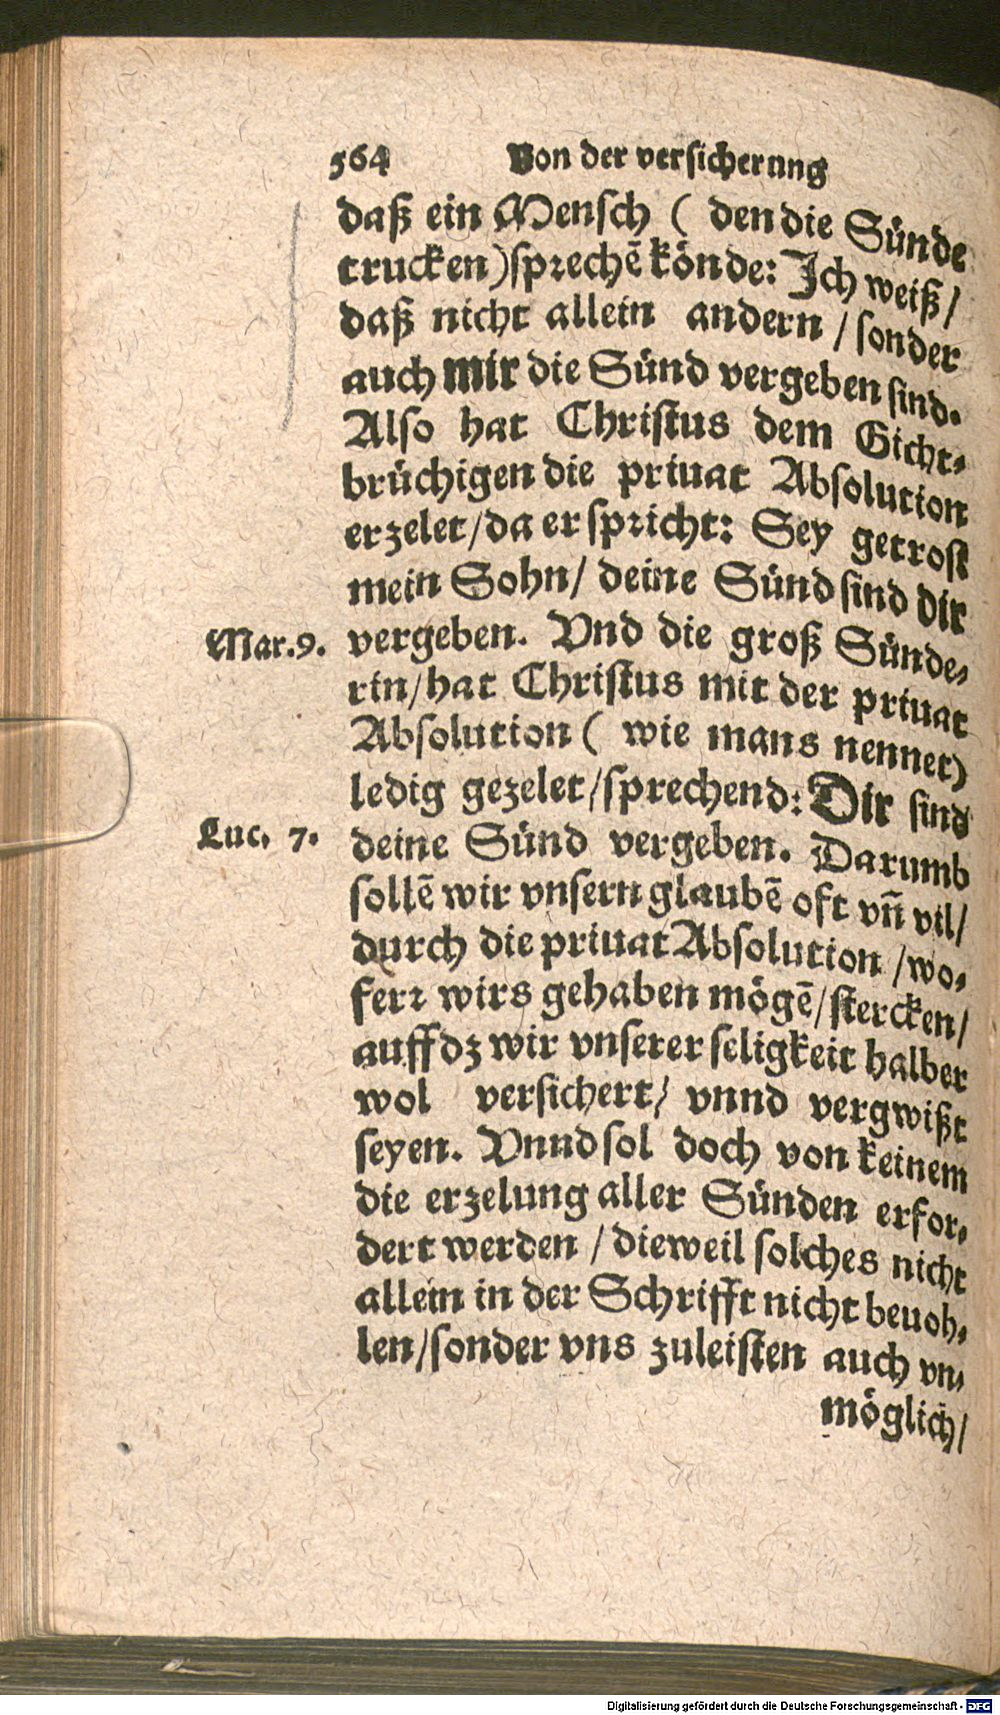 564 Von der versicherung
daß ein Mensch ( den die Sünde
trucken)sprechẽ könde: Ich weiß/
daß nicht allein andern / sonder
auch mir die Sünd vergeben sind.
Also hat Christus dem Gicht-
brüchigen die priuat Absolution
erzelet/da er spricht: Sey getrost
mein Sohn/ deine Sünd sind dir
Mar.9. vergeben. Vnd die groß Sünde-
rin/hat Christus mit der priuat
Absolution ( wie mans nennet)
ledig gezelet/sprechend: Dir sind
Luc. 7. deine Sünd vergeben. Darumb
sollẽ wir vnsern glaubẽ oft vñ vil/
durch die priuat Absolution /wo-
ferr wirs gehaben mögẽ/stercken/
auffdz wir vnserer seligkeit halber
wol versichert/ vnnd vergwißt
seyen. Vnnd sol doch von keinem
die erzelung aller Sünden erfor-
dert werden / dieweil solches nicht
allein in der Schrifft nicht beuoh-
len/sonder vns zuleisten auch vn-
möglich/
Digitalisierung gefördert durch die Deutsche Forschungsgemeinschaft - DFG